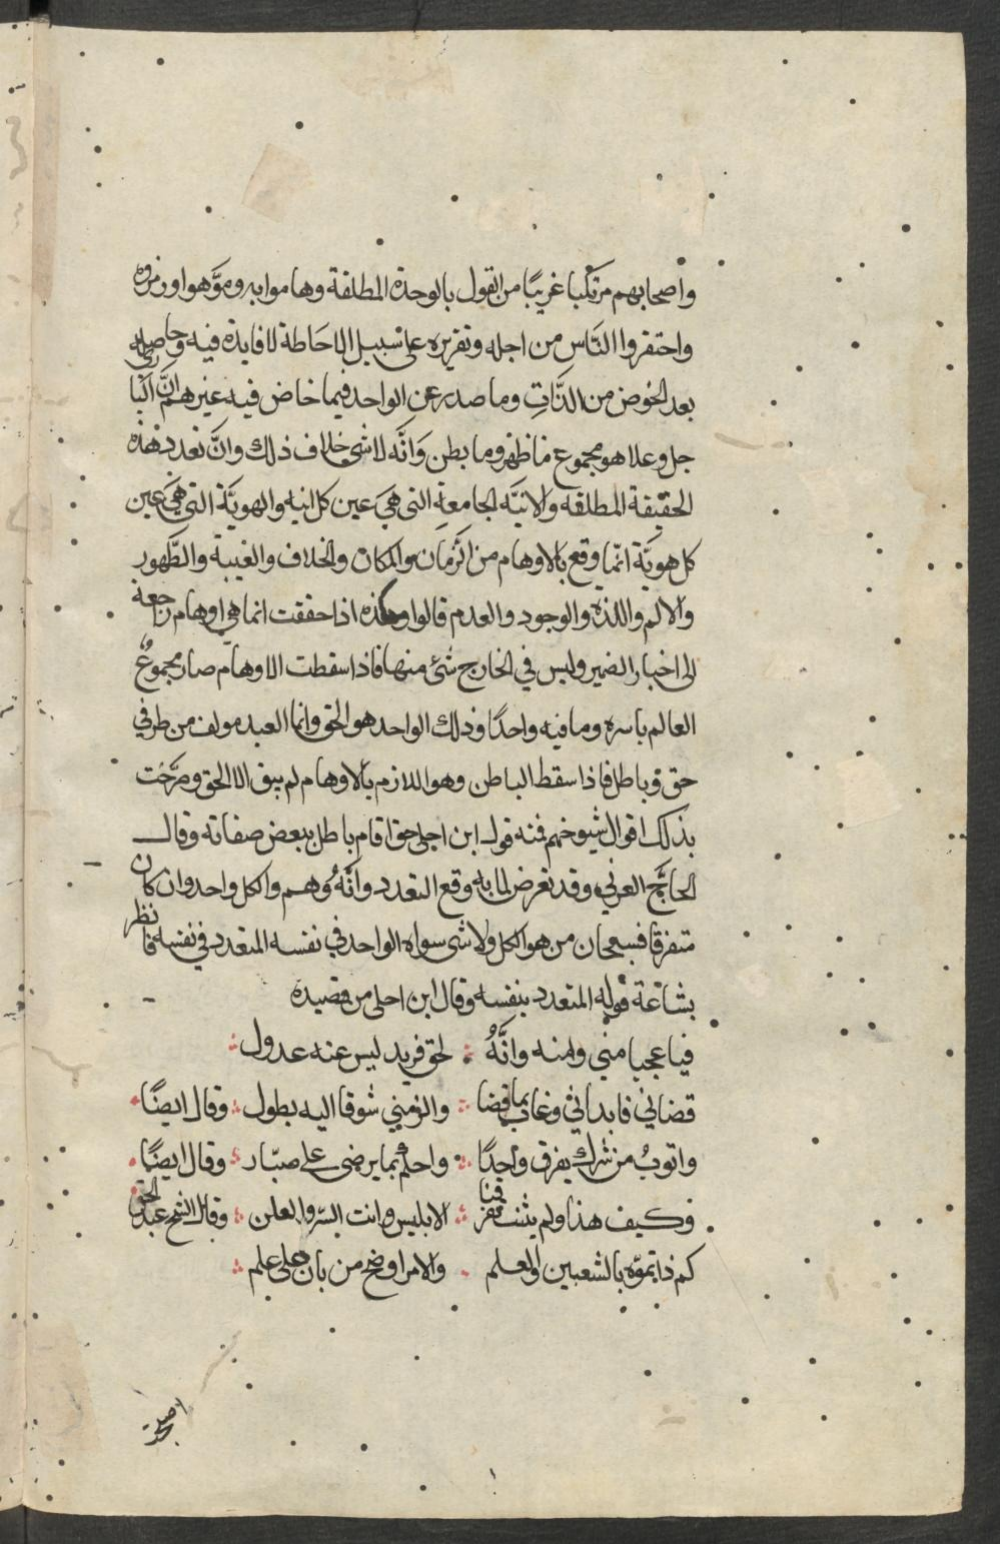 واصحابهم مرتكبا غريبًا من القول بالوحدة المطلقة وهاموا به وموَّهوا ورمزوه
واحتقروا النَّاس من اجله وتقريره على سبيل الاحاطة لا فايدة فيه وحاصله
بعد الخوض من الذَّاتِ وما صدر عن الواحد فيما خاض فيه غيرهم انَّ الباري
جل وعلا هو مجموع ما ظهر وما بطن وَانَّه لا شئ خلاف ذلك وانَّ تعدد هذه
الحقيقة المطلقه والانيَّه الجامعة التى هيَ عين كل انيه والهويَّة التي هيَ عين
كل هويَّة انَّما وقع بالاوهام من الزَّمان والمكان والخلاف والغيبة والظَّهور
والالم واللذة والوجود والعدم قالوا وهذه اذا حققت انما هي اوهام راجعة
الى اخبار الضمير وليس في الخارج شئ منها فاذا سقطت الاوهام صار مجموعُ
العالم باسره وما فيه واحدًا وذلك الواحد هو الحق وانما العبد مولف من طرفي
حق وباطل فاذا سقط الباطن وهو اللازم بالاوهام لم يبق الا الحق وصرَّحت
بذلك اقوال شيوخهم فمنه قول ابن احلى حق اقام باطل ببعض صفاته وقال
الحاجَّ العرني وقد تعرض لما به وقع التعدد وانَّهُ وهم والكل واحد وان كان
متفرقا فسبحان من هو الكل ولا شى سواه الواحد في نفسه المتعدد في نفسه فانظر
بشاعة قوله المتعدد بنفسه وقال ابن احلى من قصيدة
فيا عجبا منى ومنه وانَّهُ لحق فريد ليس عنه عدول
قضاني فابداني وغاب بما قضا والزمني شوقا اليه يطول وقال ايضًا
واتوبُ من شرك يفرق واحدًا واحلم بما يرضى على صبّار وقال ايضًا
وكيف هذا ولم يثبت مفرقنا الا بليس وانت السّر والعلن وقال الشيخ عبد الحق
كم ذا تموّه بالشعبين والعلم والامر اوضح من بان على علم